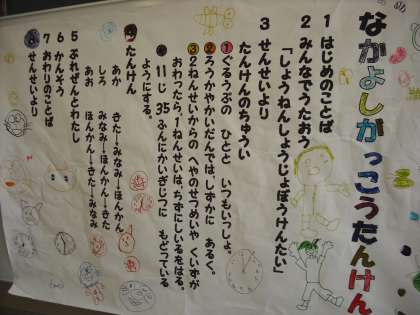 なかよしがっこうたんけん
1 はじめのことば
2 みんなでうたおう
「しょうねんしょうじょぼうけんたい」
3 せんせいより
たんけんのちゅうい
1 ぐるうぷの ひとと いつもいっしょ。
2 ろうかやかいだんでは、しずかに あるく。
3 2ねんせいからの へやのせつめいや くいずが
おわったら1ねんせいは、ちずにしいるをはる。
4 11じ 35ふんにかいぎしつに もどっている
ようにする。
4 たんけん
あか きた→みなみ→ほんかん
しろ みなみ→ほんかん→きた
あお ほんかん→きた→みなみ
5 ぷれぜんとわたし
6 かんそう
7 おわりのことば
8 せんせいより